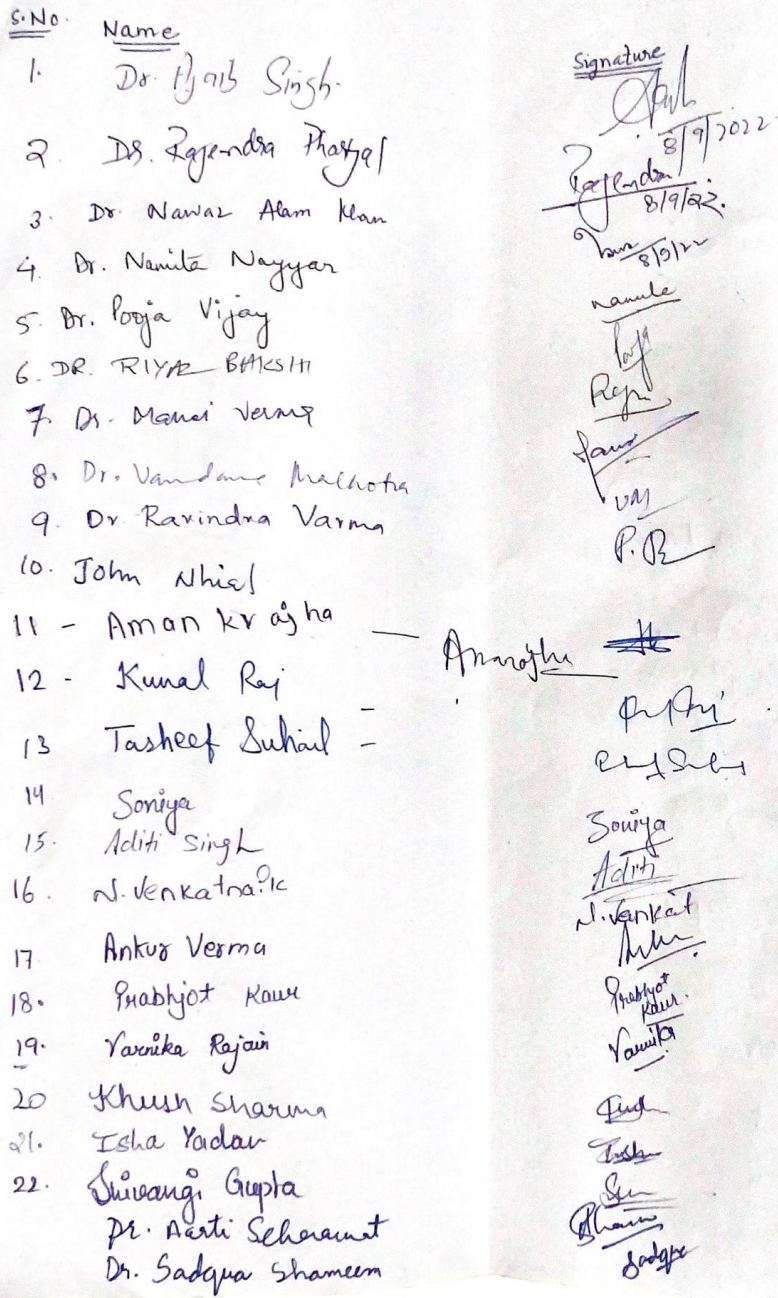 S.No. Name Signature
1. Dr. Singh.
8/9/2022
2. Dr. Rajendra Pharsyal
Rajendra
8/9/22.
3. Dr. Nawaz Alam Khan
8/9/22
4. Dr. Namita Nayyar
5. Dr. Pooja Vijay
6. DR. RIYAZ BAKSHI
7. Dr. Mansi Verma
8. Dr. Vandana Malhotra VM
9. Dr Ravindra Varma P.R
10. John Nhial
11 - Aman kr ojha —
12 - Kunal Raj -
13 Tasheef Suhail -
14 Soniya Soniya
15. Aditi Singh Aditi
16. N. Venkatnaik N. Venkat
17 Ankur Verma
18. Prabhjot Kaur Prabhjot
Kaur.
19. Varnika Rajain Varnika
20 Khush Sharma
21. Isha Yadav
22. Shivangi Gupta
Dr. Aarti Seherawat
Dr. Sadqua Shameem Sadque